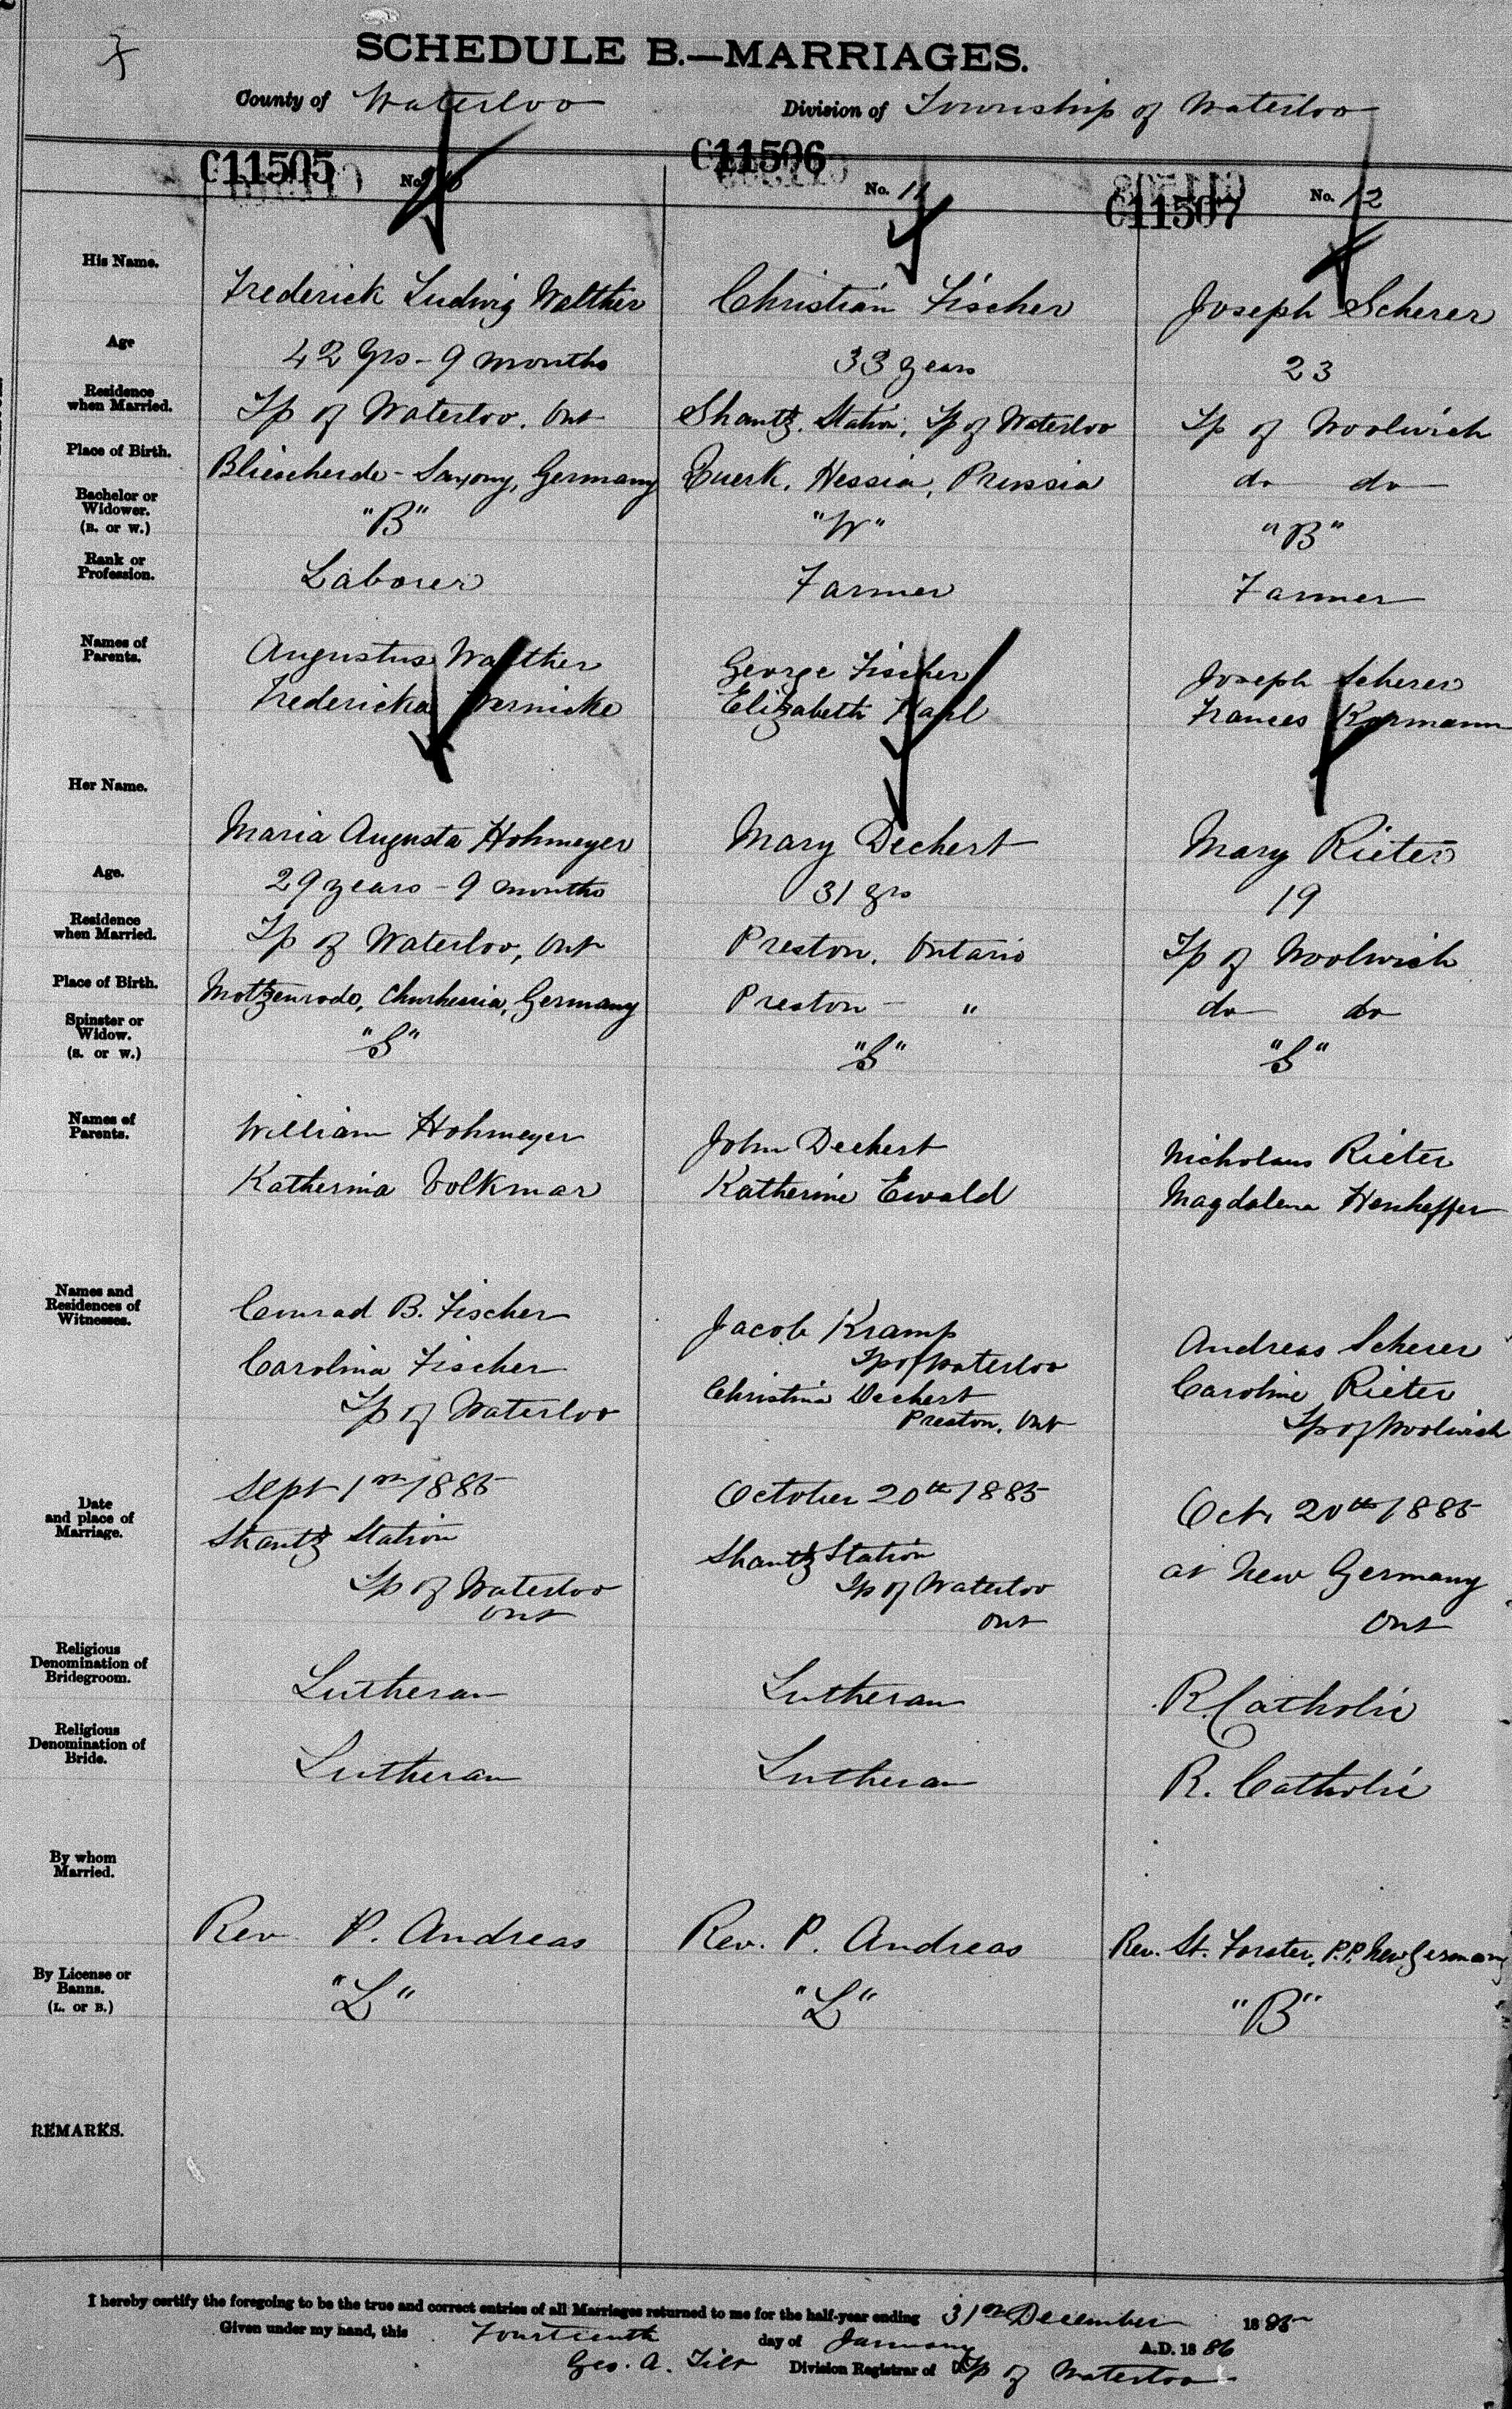 SCHEDULE B.—MARRIAGES.
County of Waterloo Division of Township of Waterloo
C11505 No. 10 C11506 No. 11 C11507 No. 12
His Name. Frederick Ludwig Walther Christian Fischer Joseph Scherer
Age 42 yrs - 9 months 33 years 23
Residence when Married. Tp of Waterloo, Ont Shantz Station, Tp of Waterloo Tp of Woolwich
Place of Birth. Saxony, Germany Hessia, Prussia do do
Bachelor or Widower. (B. or W.) "B" "W" "B"
Rank or Profession. Laborer Farmer Farmer
Names of Parents. Augustus Walther George Fischer Joseph Scherer
Fredericka Wernicke Elizabeth Frances
Her Name. Maria Augusta Hohmeyer Mary Dechert Mary Rieter
Age. 29 years - 9 months 31 yrs 19
Residence when Married. Tp of Waterloo, Ont Preston, Ontario Tp of Woolwich
Place of Birth. Germany Preston - " do do
Spinster or Widow. (S. or W.) "S" "S" "S"
Names of Parents. William Hohmeyer John Dechert Nicholaus Rieter
Katherina Volkmar Katherine Ewald Magdalena
Names and Residences of Witnesses. Conrad B. Fischer Jacob Kramp Andreas Scherer
Carolina Fischer Tp of Waterloo Caroline Rieter
Tp of Waterloo Christina Dechert Tp of Woolwich
Preston, Ont
Date and place of Marriage. Sept 1st 1885 October 20th 1885 Oct. 20th 1885
Shantz Station Shantz Station at New Germany
Tp of Waterloo Tp of Waterloo Ont
Ont Ont
Religious Denomination of Bridegroom. Lutheran Lutheran R. Catholic
Religious Denomination of Bride. Lutheran Lutheran R. Catholic
By whom Married. Rev. P. Andreas Rev. P. Andreas Rev. St. Forster, P.P. New Germany
By License or Banns. (L. or B.) "L" "L" "B"
REMARKS.
I hereby certify the foregoing to be the true and correct entries of all Marriages returned to me for the half-year ending 31st December 1885
Given under my hand, this Fourteenth day of January A.D. 1886
Geo. A. Tilt Division Registrar of Tp of Waterloo